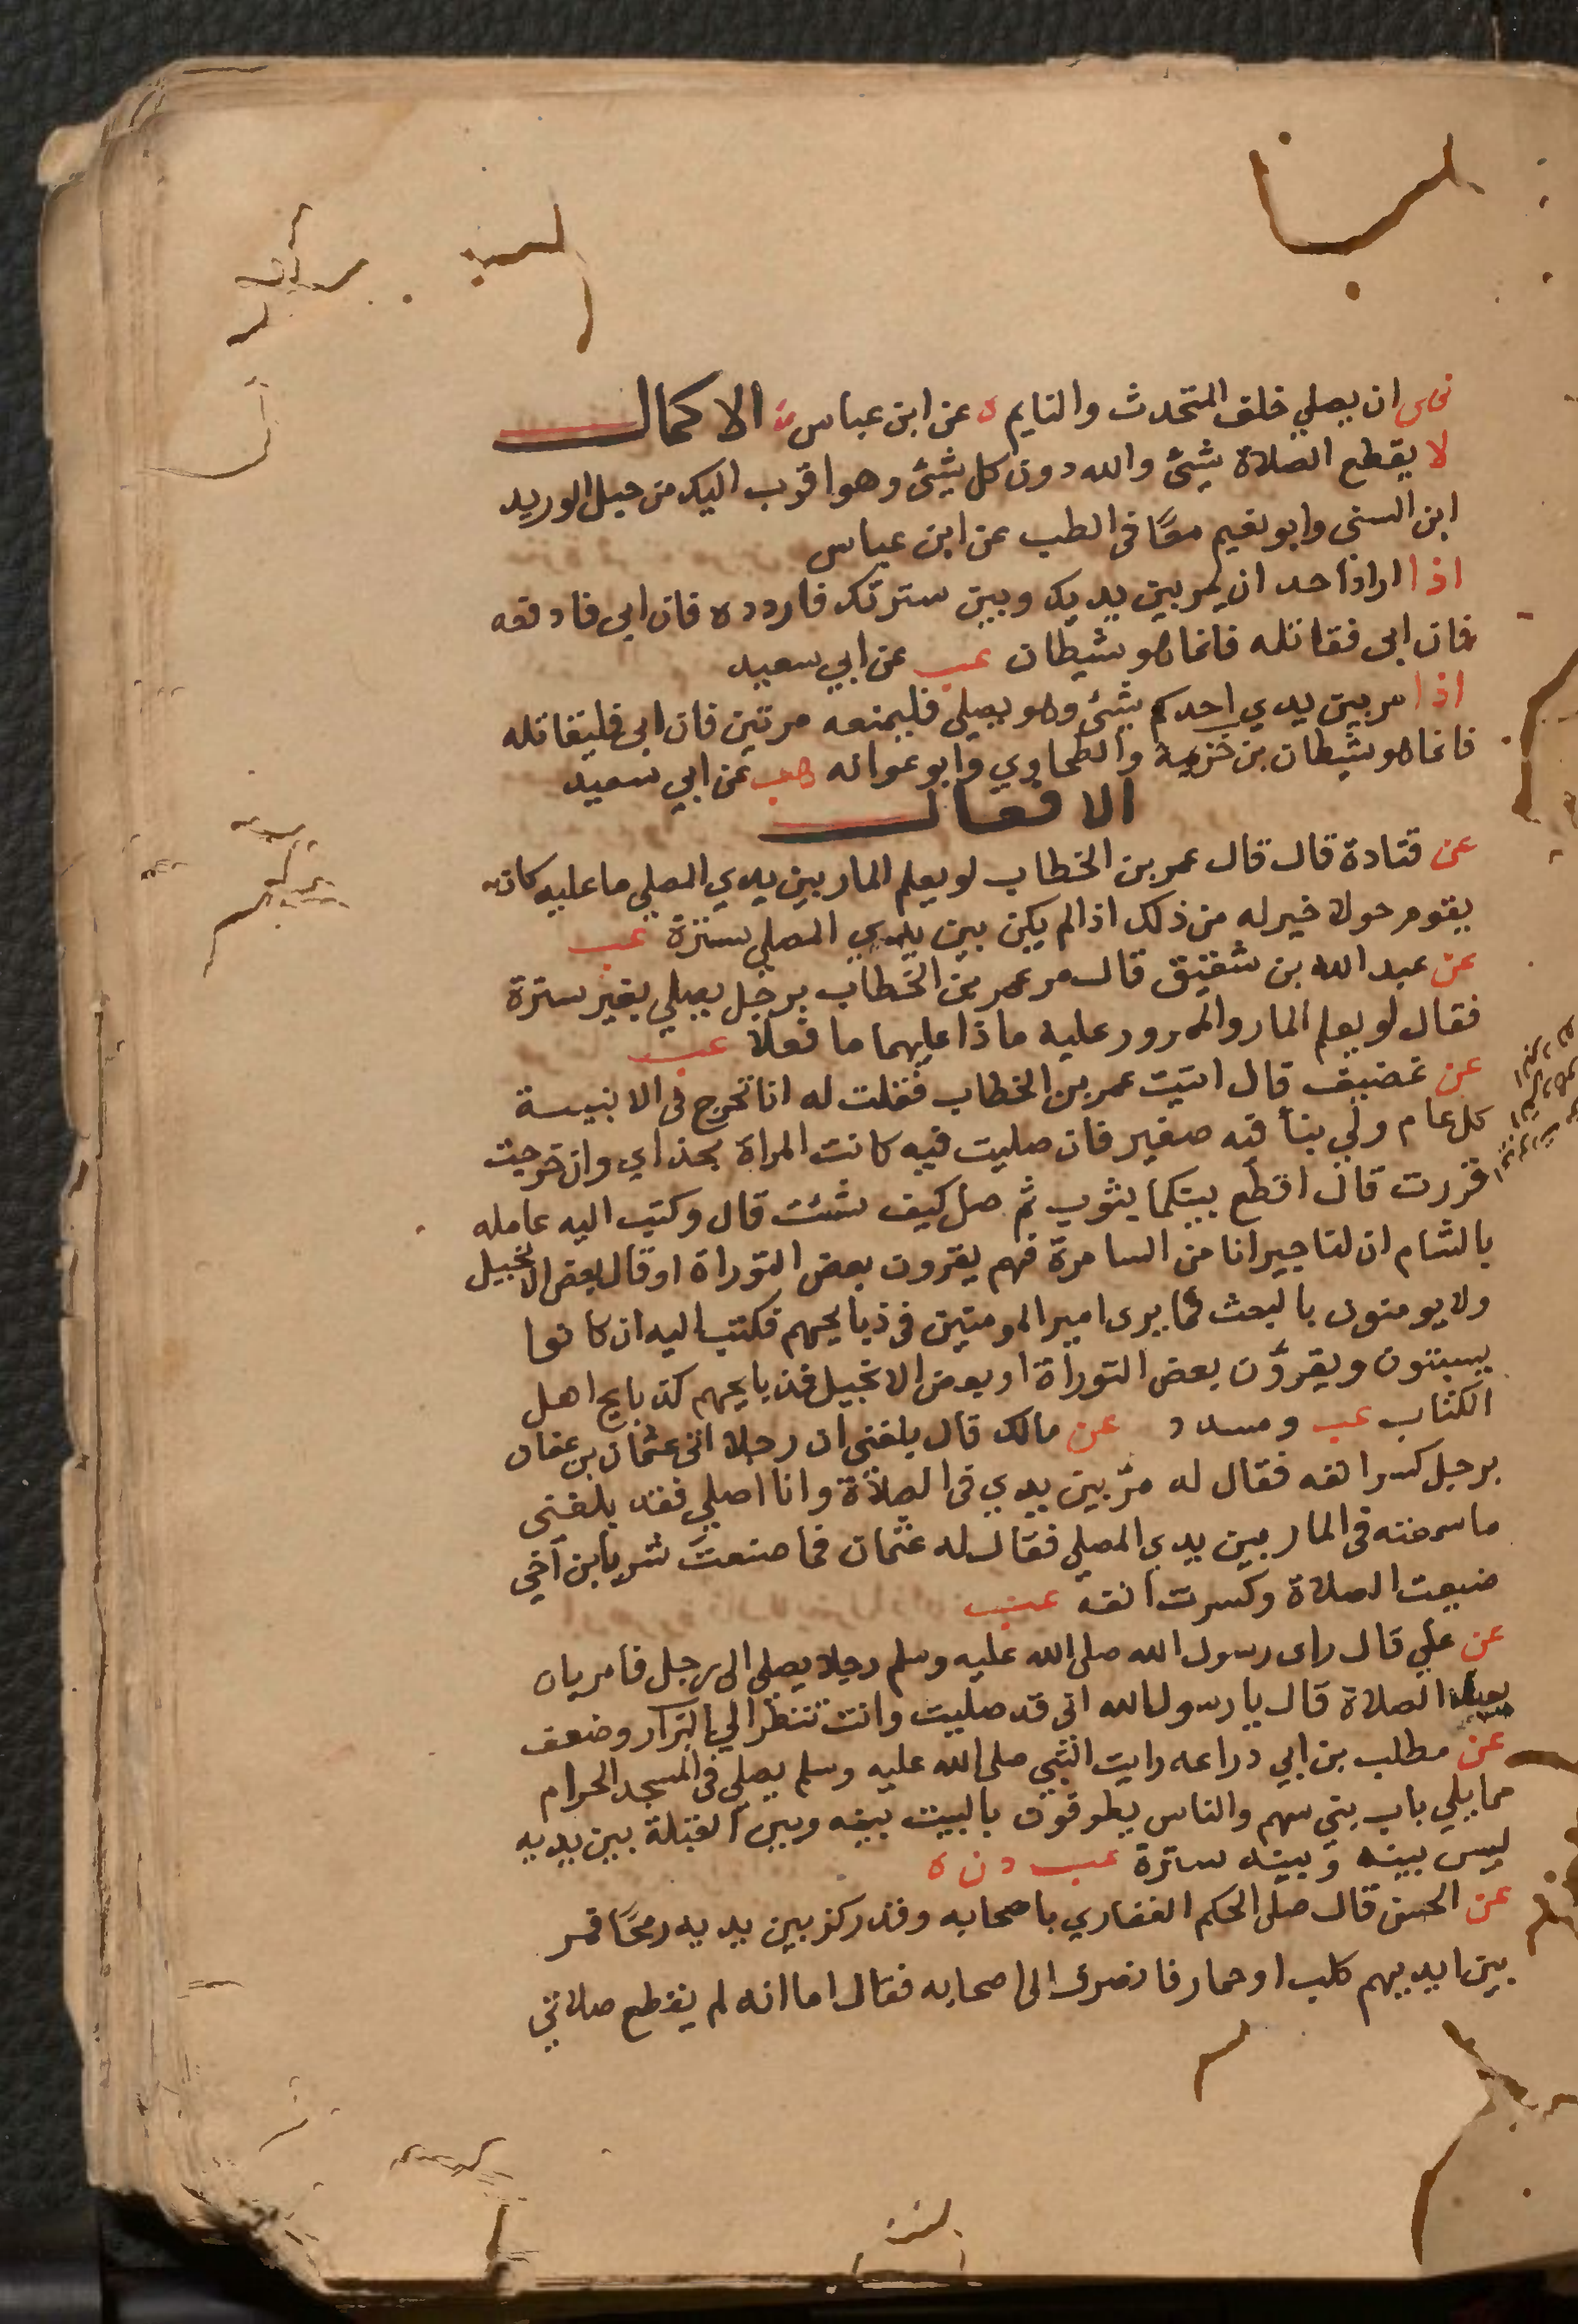 نهى ان يصلي خلف المتحدث والنايم ه عن ابن عباس الاكمال
لا يقطع الصلاة شئ والله دون كل شئ وهو اقرب اليك من حبل الوريد
ابن السنى وابو نعيم معًا فى الطب عن ابن عباس
اذا اراد احد ان يمر بين يديك وبين سترتك فاردده فان ابى فادفعه
فان ابى فقاتله فانما هو شيطان عب عن ابي سعيد
اذا مر بين يدي احدكم شئ وهو يصلي فليمنعه مرتين فان ابى فليقاتله
فانما هو شيطان بن خزيمة والطحاوي وابو عوانه حب عن ابي سعيد
الافعال
عن قتادة قال قال عمر بن الخطاب لو يعلم المار بين يدي المصلي ما عليه كان
يقوم حولا خير له من ذلك اذا لم يكن بين يدي المصلي سترة عب
عن عبد الله بن شقيق قال مر عمر بن الخطاب برجل يصلي بغير سترة
فقال لو يعلم المار والممرور عليه ماذا عليهما ما فعلا عب
عن غضيف قال اتيت عمر بن الخطاب فقلت له انا نخرج فى الابنيسة
كل عام ولي بنأ فيه صغير فان صليت فيه كانت المراة بحذاي وان خرجت
قررت قال اقطع بينكما بثوب ثم صل كيف شئت قال وكتب اليه عامله
بالشام ان لنا جيرانا من السامرة فهم يقرون بعض التوراة او قال بعض الانجيل
ولا يومنون بالبعث فما يرى امير المومنين فى ذبايحهم فكتب اليه ان كانوا
يسبتون ويقرؤن بعض التوراة او بعض الانجيل فذبايحهم كذبايح اهل
الكتاب عب ومسدد عن مالك قال بلغنى ان رجلا اتى عثمان بن عفان
برجل كسر انفه فقال له مرّ بين يدي فى الصلاة وانا اصلي فقد بلغنى
ما سمعته فى المار بين يدي المصلي فقال له عثمان فما صنعت شر يا بن اخي
ضيعت الصلاة وكسرت انفه عب
عن علي قال راى رسول الله صلى الله عليه وسلم رجلا يصلى الى رجل فامر بان
يعيد الصلاة قال يا رسول الله انى قد صليت وانت تنظر الي البزار وضعف
عن مطلب بن ابي دراعه رايت النبي صلى الله عليه وسلم يصلي فى المسجد الحرام
مما يلي باب بني سهم والناس يطوفون بالبيت بينه وبين القبلة بين يديه
ليس بينه وبينه سترة عب د ن ه
عن الحسن قال صلى الحكم الغفاري باصحابه وقد ركز بين يديه رمحًا فمر
بين ايديهم كلب او حمار فانصرف الى اصحابه فقال اما انه لم يقطع صلاتي